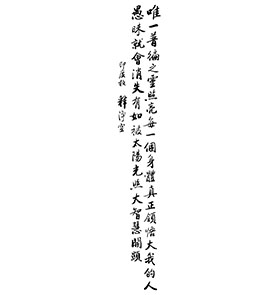 唯一普徧之靈照亮每一個身體真正領悟大我的人
愚昧就會消失有如被太陽光照大智慧開顯
印度教
釋淨空